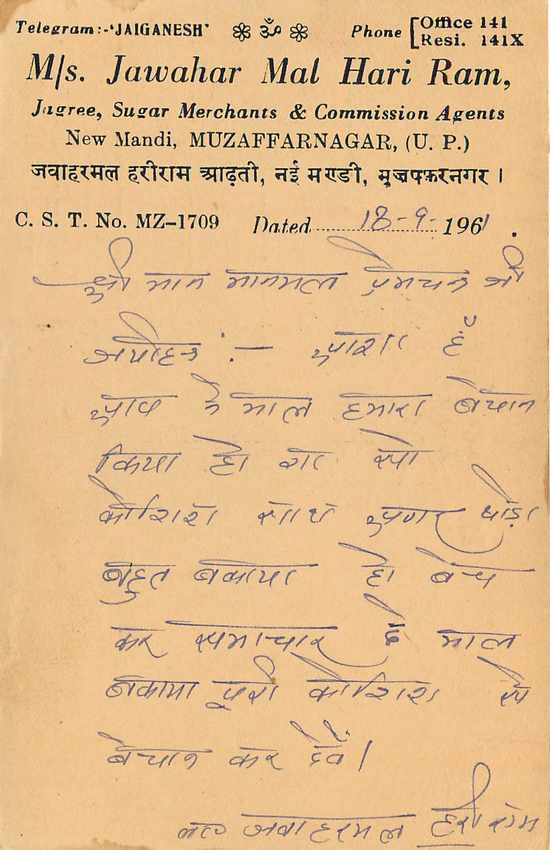 Telegram:-'JAIGANESH' ॐ Phone [Office 141
Resi. 141X
M/s. Jawahar Mal Hari Ram,
Jagree, Sugar Merchants & Commission Agents
New Mandi, MUZAFFARNAGAR, (U. P.)
जवाहरमल हरीराम आढ़ती, नई मण्डी, मुज़फ्फ़रनगर ।
C. S. T. No. MZ-1709 Dated 18-9- 1961 .
श्री मान मानमल प्रेमचन्द जी
अबोहर :- आशा हैं
आप ने माल हमारा बेचान
किया हो गा सो
कोशिश साथ अगर थोड़ा
बहुत बकाया हो बेच
कर समाचार दे माल
बकाया पूरी कोशिश से
बेचान कर देवें।
जवाहरमल हरी राम